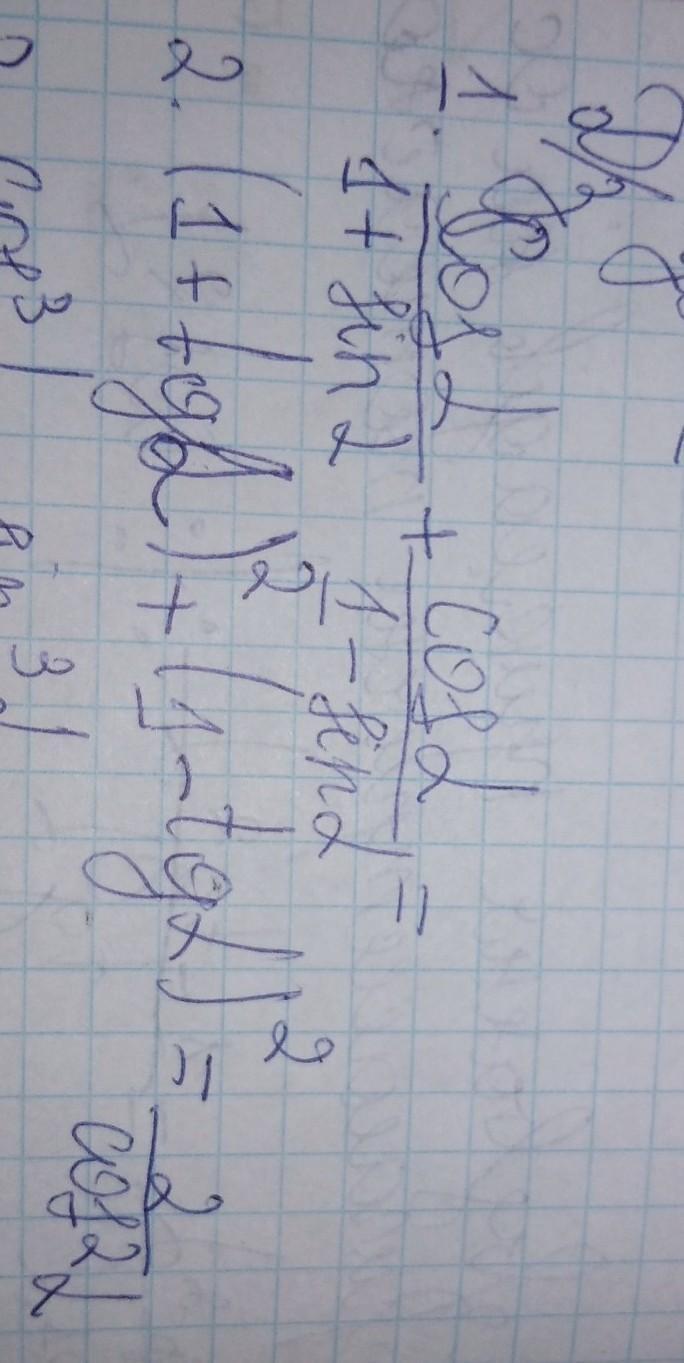 Д/з
1. cosα/(1 + sinα) + cosα/(1 - sinα) =
2. (1 + tgα)² + (1 - tgα)² = 2/cos²α